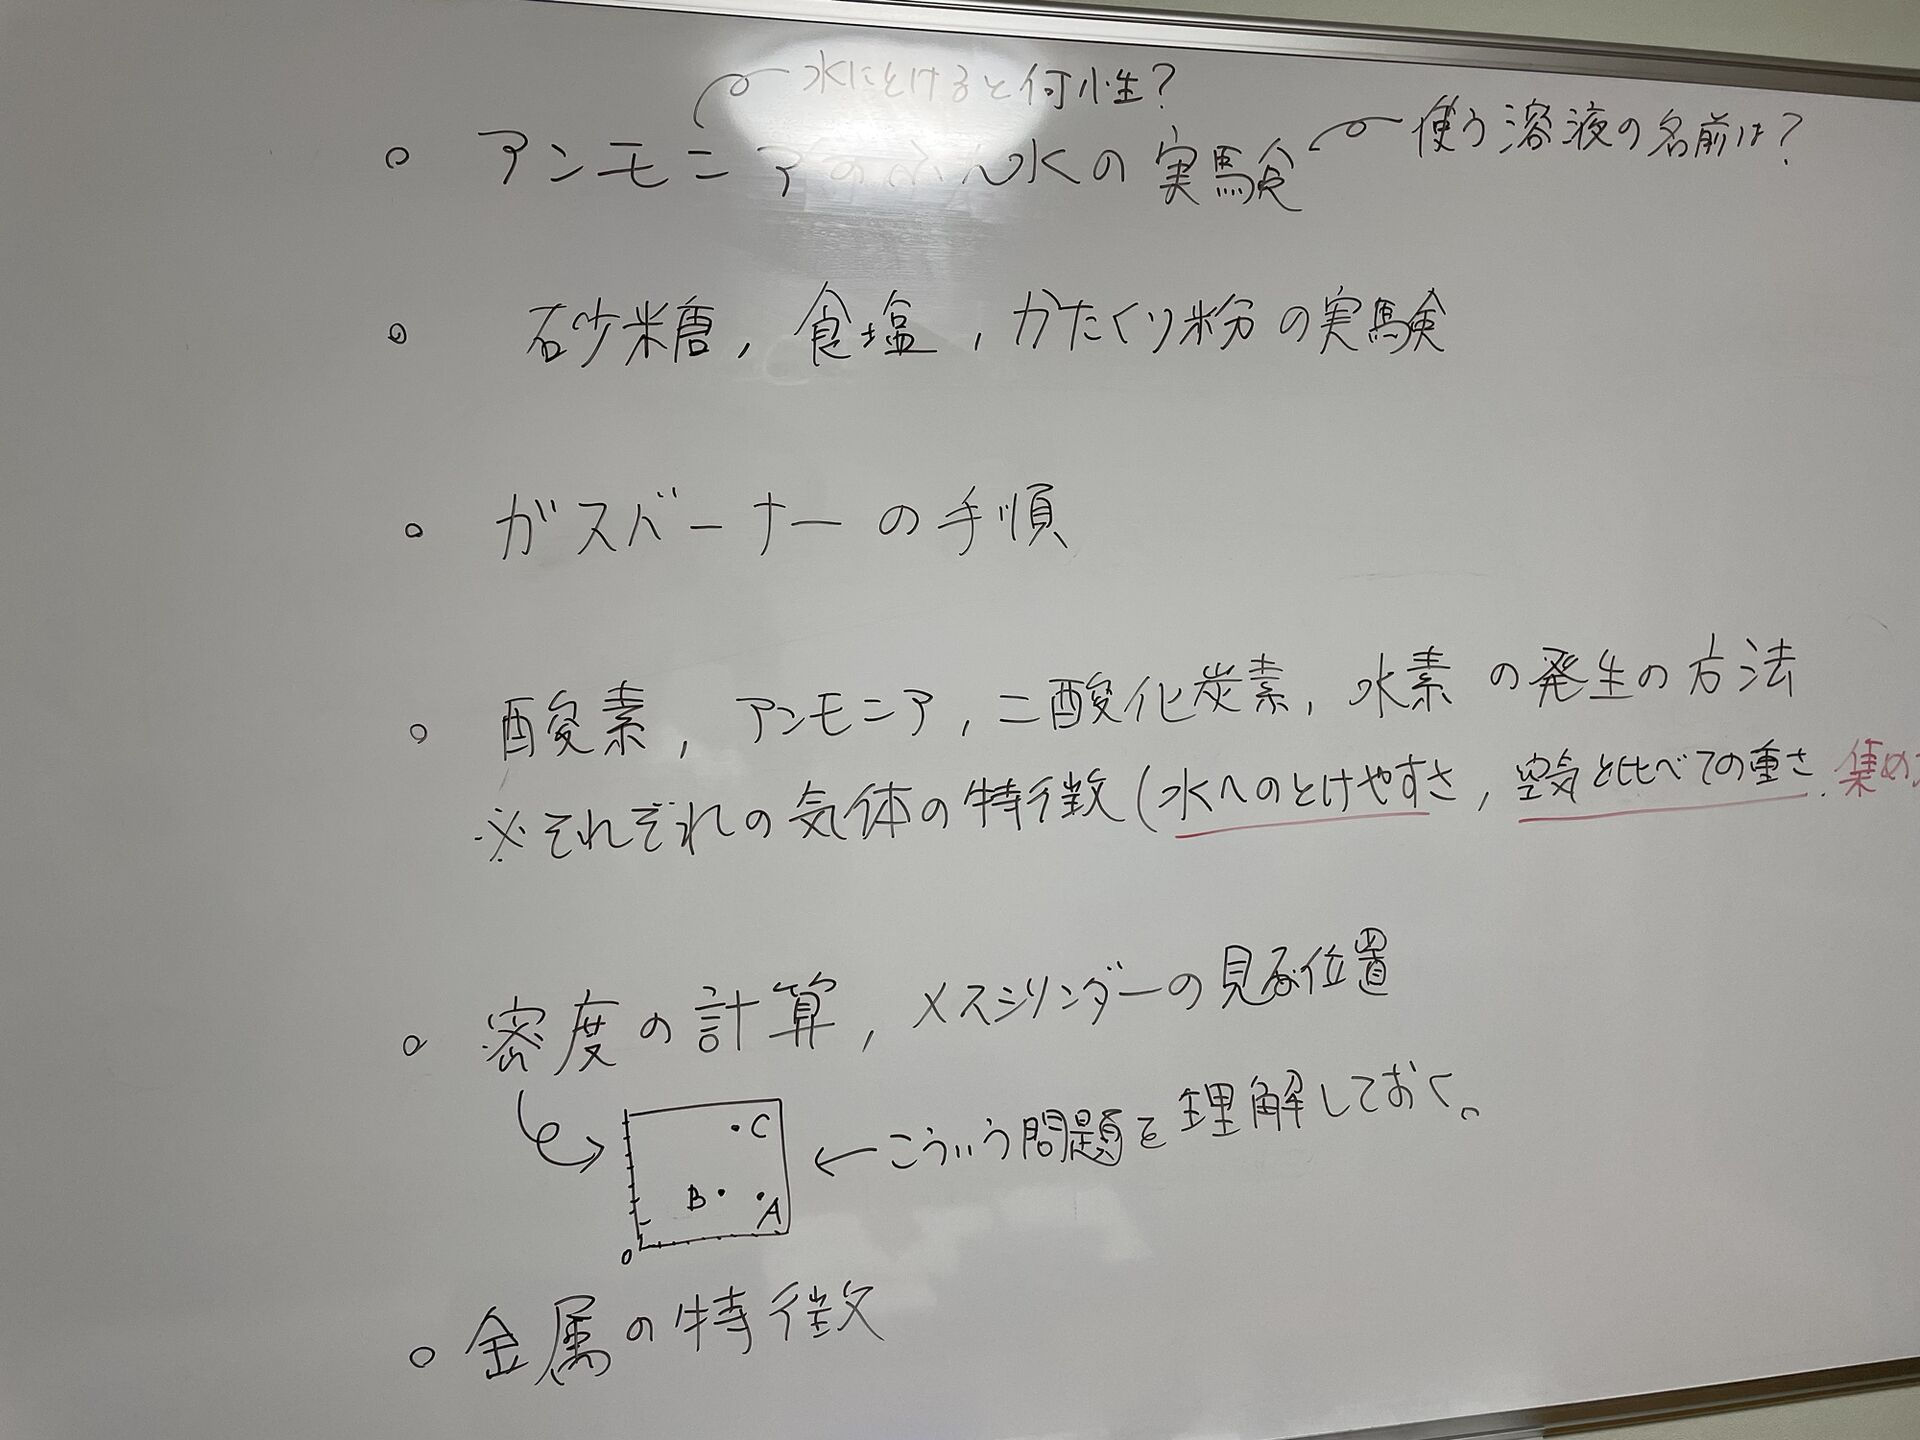 水にとけると何性？
使う溶液の名前は？
○ アンモニアのふん水の実験
○ 砂糖, 食塩, かたくり粉の実験
○ ガスバーナーの手順
○ 酸素, アンモニア, 二酸化炭素, 水素の発生の方法
※それぞれの気体の特徴(水へのとけやすさ, 空気と比べての重さ, 集め
○ 密度の計算, メスシリンダーの見る位置
C
B A
0
←こういう問題を理解しておく。
○ 金属の特徴